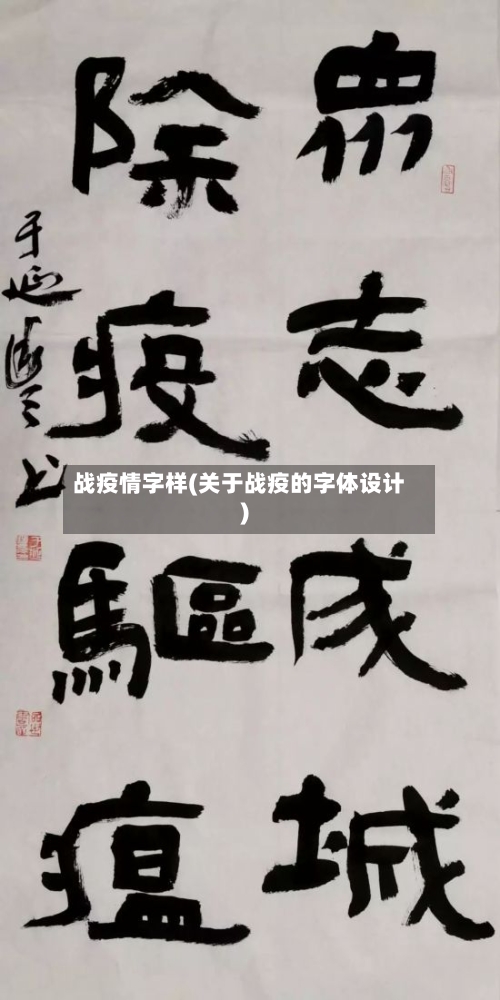 眾志成城
除疫驅瘟
战疫情字样(关于战疫的字体设计
)